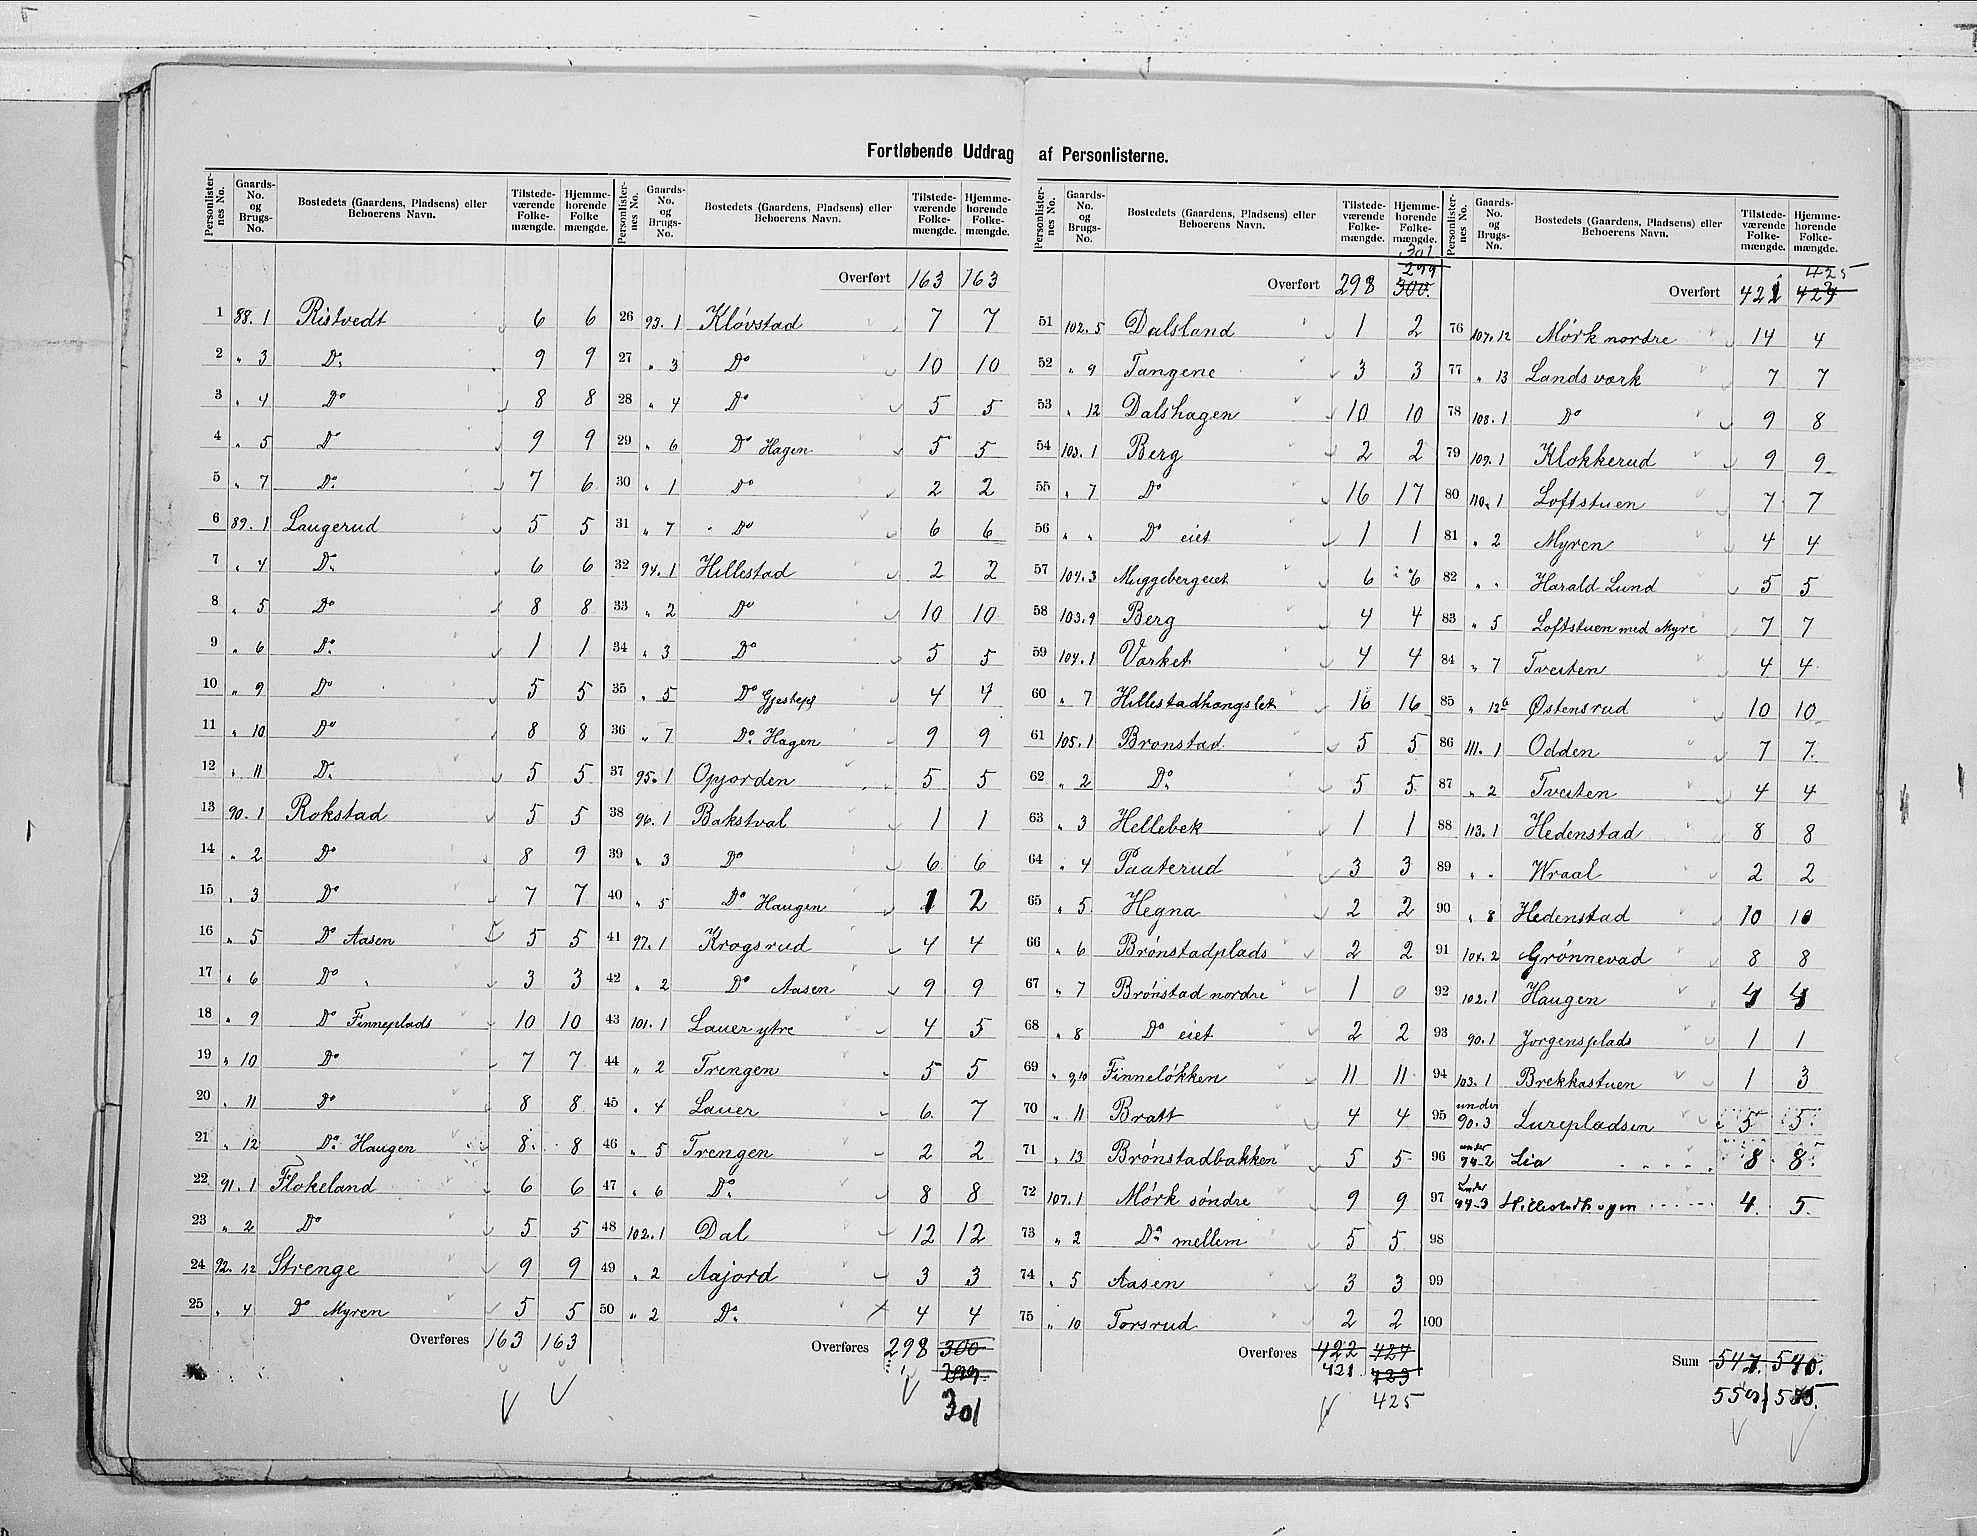 Fortløbende Uddrag af Personlisterne.
Personlister-nes No. | Gaards-No. og Brugs-No. | Bostedets (Gaardens, Pladsens) eller Beboerens Navn. | Tilstede-værende Folke-mængde. | Hjemme-hørende Folke mængde.
1 88. 1 Ristvedt 6 6
2 " 3 Do 9 9
3 " 4 Do 8 8
4 " 5 Do 9 9
5 " 7 Do 7 6
6 89. 1 Laugerud 5 5
7 " 4 Do 6 6
8 " 5 Do 8 8
9 " 6 Do 1 1
10 " 9 Do 5 5
11 " 10 Do 8 8
12 " 11 Do 5 5
13 90. 1 Rokstad 5 5
14 " 2 Do 8 9
15 " 3 Do 7 7
16 " 5 Do Aasen 5 5
17 " 6 Do " 3 3
18 " 9 Do Finneplads 10 10
19 " 10 Do 7 7
20 " 11 Do 8 8
21 " 12 Do Haugen 8 8
22 91. 1 Flokeland 6 6
23 " 2 Do 5 5
24 92. Strenge 9 9
25 " 4 Do Myren 5 5
Overføres 163 163
Personlister-nes No. | Gaards-No. og Brugs-No. | Bostedets (Gaardens, Pladsens) eller Beboerens Navn. | Tilstede-værende Folke-mængde. | Hjemme-hørende Folke-mængde.
Overført 163 163
26 93. 1 Kløvstad 7 7
27 " 3 Do 10 10
28 " 4 Do 5 5
29 " 6 Do Hagen 5 5
30 " 1 Do 2 2
31 " 7 Do 6 6
32 94. 1 Hillestad 2 2
33 " 2 Do 10 10
34 " 3 Do 5 5
35 " 5 Do 4 4
36 " 7 Do Hagen 9 9
37 95. 1 Opjorden 5 5
38 96. 1 Bakstval 1 1
39 " 3 Do 6 6
40 " 5 Do Haugen 1 2
41 97. 1 Krogsrud 4 4
42 " 2 Do Aasen 9 9
43 101. 1 Lauer ytre 4 5
44 " 2 Trengen 5 5
45 " 4 Lauer 6 7
46 " 5 Trengen 2 2
47 " 6 Do 8 8
48 102. 1 Dal 12 12
49 " 2 Aajord 3 3
50 " 2 Do 4 4
Overføres 298 300
299.
301
Personlister-nes No. | Gaards-No. og Brugs-No. | Bostedets (Gaardens, Pladsens) eller Beboerens Navn. | Tilstede-værende Folke-mængde. | Hjemme-hørende Folke-mængde.
301
299
Overført 298 300.
51 102. 5 Dalsland 1 2
52 " 9 Tangene 3 3
53 " 12 Dalshagen 10 10
54 103. 1 Berg 2 2
55 " 7 Do 16 17
56 " " Do eiet 1 1
57 104. 3 Muggebergeiet 6 6
58 103. 9 Berg 4 4
59 104. 1 Værket 4 4
60 " 7 Hillestadhangslet 16 16
61 105. 1 Bronstad 5 5
62 " 2 Do 5 5
63 " 3 Hellebek 1 1
64 " 4 Paaterud 3 3
65 " 5 Hegna 2 2
66 " 6 Brønstadplads 2 2
67 " 7 Brønstad nordre 1 0
68 " 8 Do eiet 2 2
69 " 9,10 Finneløkken 11 11
70 " 11 Bratt 4 4
71 " 13 Brønstadbakken 5 5
72 107. 1 Mørk søndre 9 9
73 " 2 Do mellem 5 5
74 " 5 Aasen 3 3
75 " 10 Torsrud 2 2
Overføres 422 424
421. 423
425
Personlister-nes No. | Gaards-No. og Brugs-No. | Bostedets (Gaardens, Pladsens) eller Beboerens Navn. | Tilstede-værende Folke-mængde. | Hjemme-hørende Folke-mængde.
425
Overført 421 424
76 107. 12 Mørk nordre 14 4
77 " 13 Landsværk 7 7
78 108. 1 Do 9 8
79 109. 1 Klokkerud 9 9
80 110. 1 Loftstuen 7 7
81 " 2 Myren 4 4
82 " " Harald Lund 5 5
83 " 5 Loftstuen med Myre 7 7
84 " 7 Tveiten 4 4
85 " 12b Østensrud 10 10
86 111. 1 Odden 7 7
87 " 2 Tveiten 4 4
88 113. 1 Hedenstad 8 8
89 " " Wraal 2 2
90 " 8 Hedenstad 10 10
91 104. 2 Grønnevad 8 8
92 102. 1 Haugen 4 4
93 90. 1 Jørgensplads 1 1
94 103. 1 Brekkastuen 1 3
95 under 90. 3 Lurepladsen 5 5
96 under 94-2 Lia 8 8
97 under 94-3 Hillestadhagen 4 5
98
99
100
Sum 547. 540.